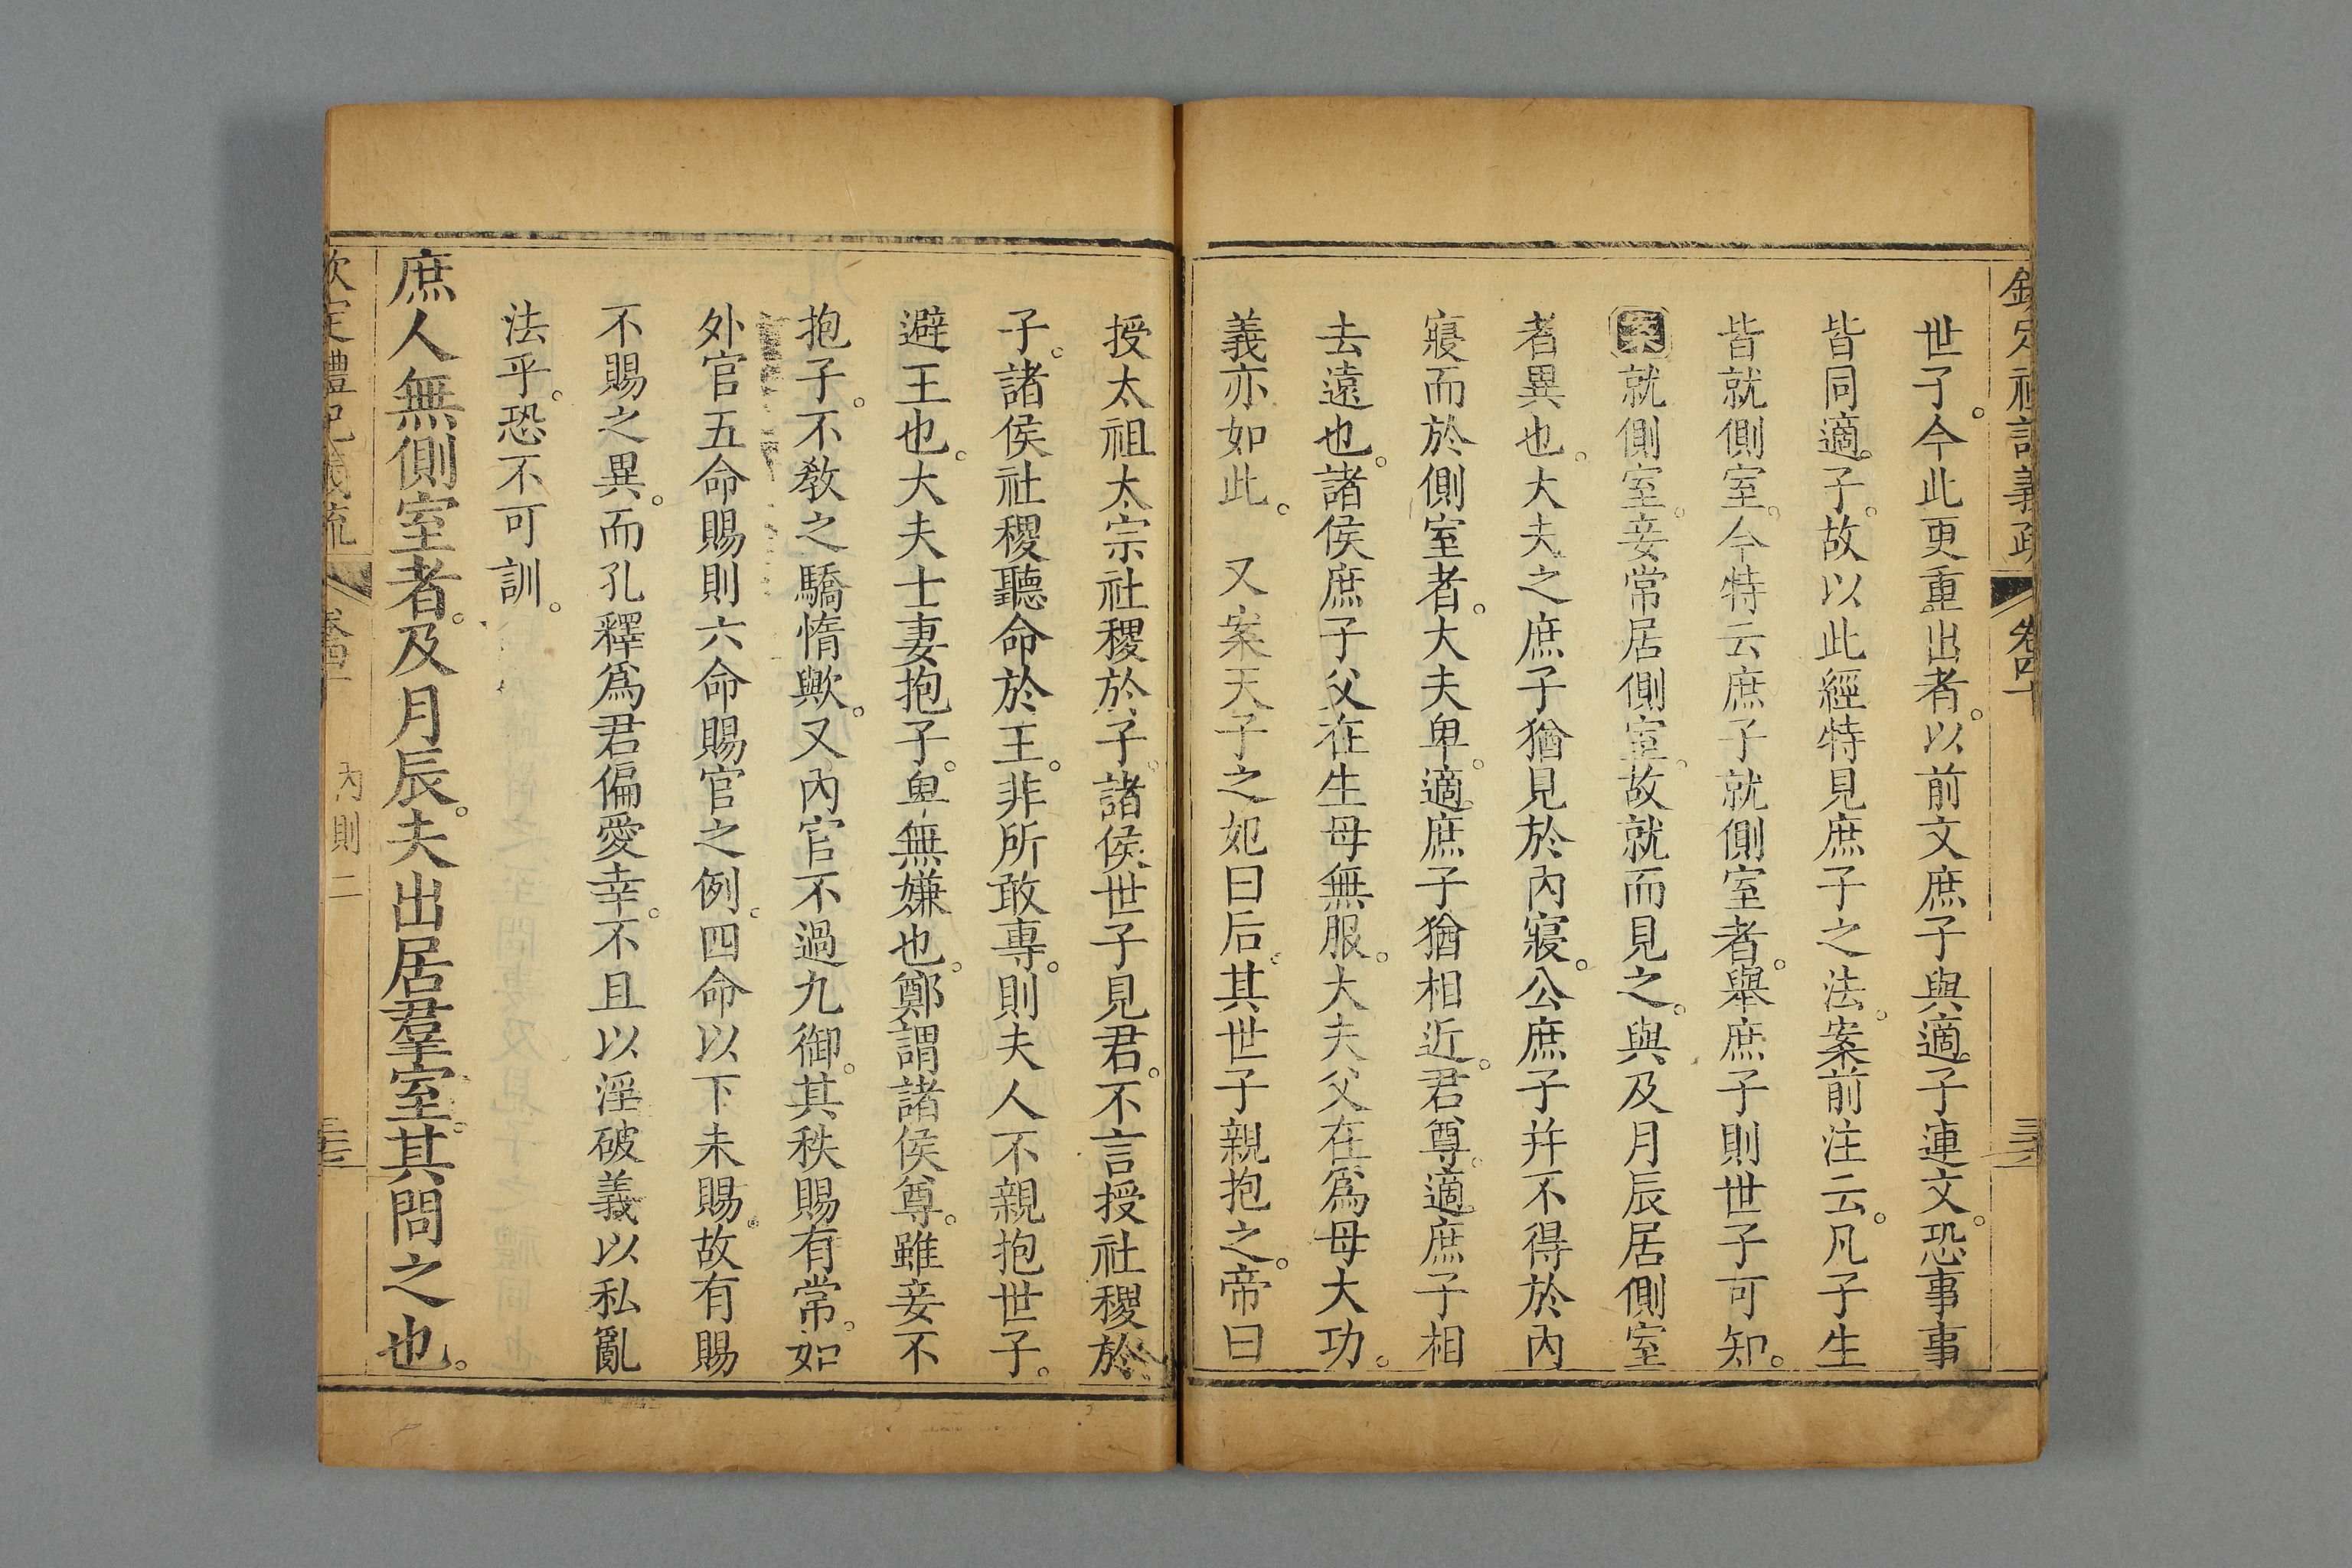 世子。今此更重出者。以前文庶子與適子連文。恐事事
皆同適子。故以此經特見庶子之法。案前注云。凡子生
皆就側室。今特云庶子就側室者。舉庶子則世子可知。
案就側室。妾常居側室。故就而見之。與及月辰居側室
者異也。大夫之庶子猶見於內寢。公庶子并不得於內
寢而於側室者。大夫卑。適庶子猶相近。君尊。適庶子相
去遠也。諸侯庶子父在生母無服。大夫父在爲母大功。
義亦如此。 又案天子之妃曰后。其世子親抱之。帝曰
授太祖太宗社稷於子。諸侯世子見君。不言授社稷於
子。諸侯社稷聽命於王。非所敢專。則夫人不親抱世子。
避王也。大夫士妻抱子。卑無嫌也。鄭謂諸侯尊。雖妾不
抱子。不敎之驕惰歟。又內官不過九御。其秩賜有常。如
外官五命賜則六命賜官之例。四命以下未賜。故有賜
不賜之異。而孔釋爲君偏愛幸。不且以淫破義以私亂
法乎。恐不可訓。
庶人無側室者。及月辰。夫出居羣室。其問之也。
欽定禮記義疏 卷四十 內則二